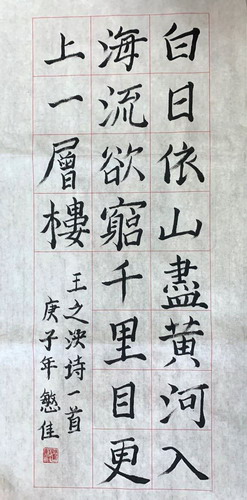 白日依山盡黄河入
海流欲窮千里目更
上一層樓
王之涣诗一首
庚子年慜佳